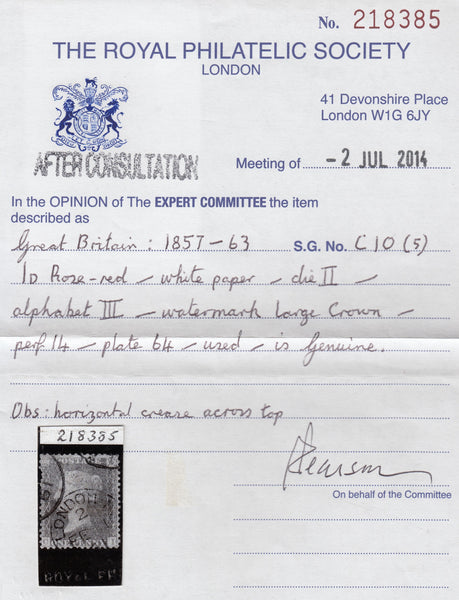 No. 218385
THE ROYAL PHILATELIC SOCIETY
LONDON
41 Devonshire Place
London W1G 6JY
AFTER CONSULTATION
Meeting of - 2 JUL 2014
In the OPINION of The EXPERT COMMITTEE the item
described as
Great Britain: 1857-63 S.G. No. C10 (5)
1D Rose-red - white paper - die II -
alphabet III - watermark Large Crown -
perf 14 - plate 64 - used - is Genuine.
Obs: horizontal crease across top
218385
LONDON
2
Pearson
On behalf of the Committee
ROYAL